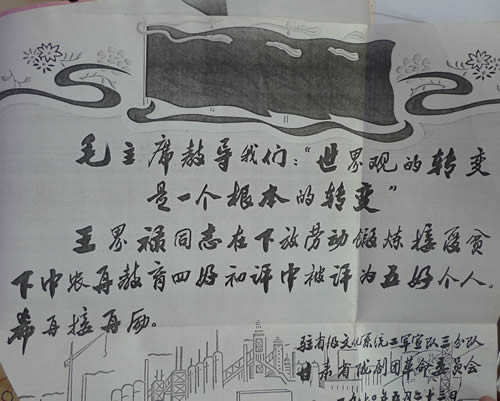 毛主席教导我们："世界观的转变
是一个根本的转变"
王界禄同志在下放劳动锻炼接受贫
下中农再教育四好初评中被评为五好个人。
希再接再励。
驻省级文化系统工军宣队三分队
甘肃省陇剧团革命委员会
一九七〇年五月二十三日